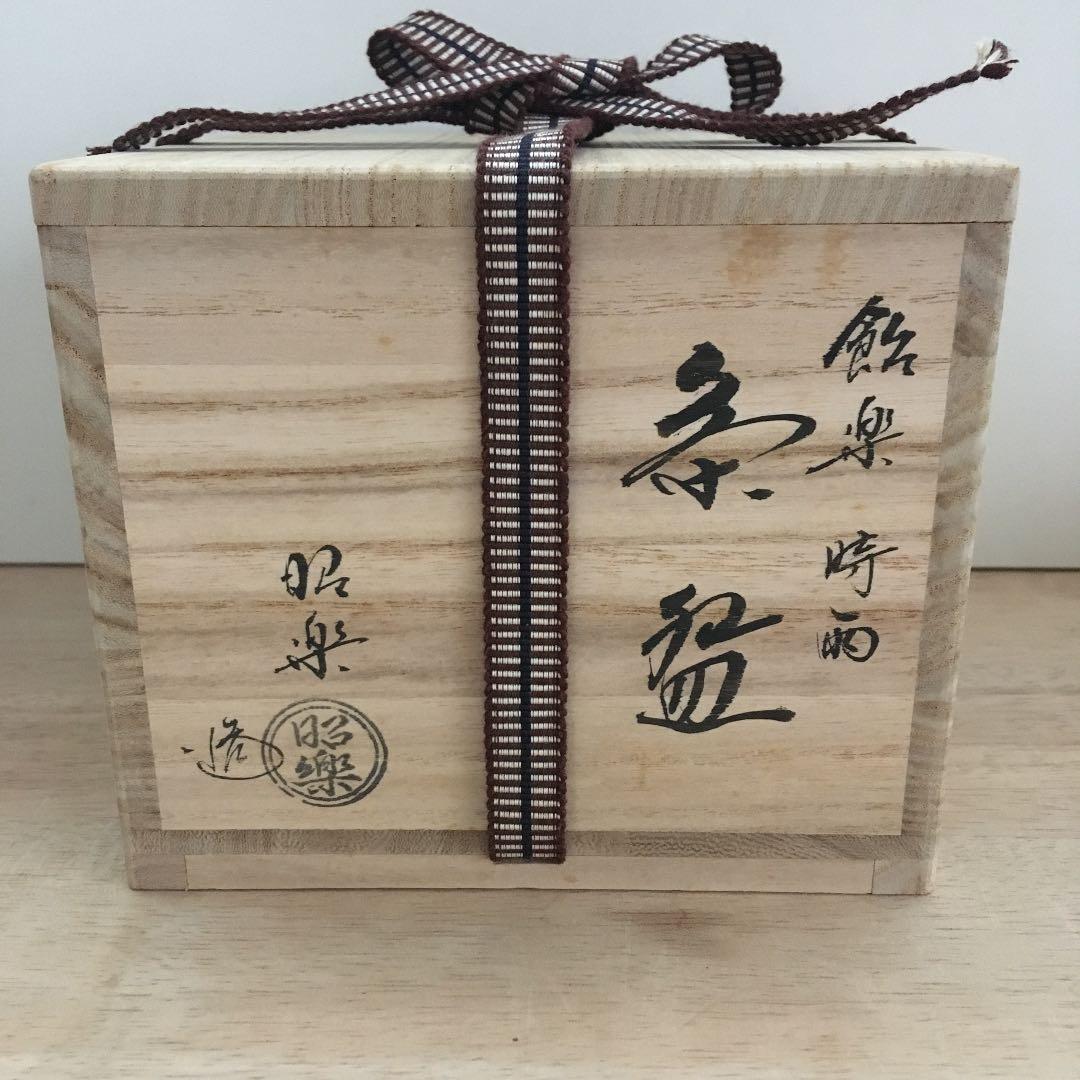 飴楽 時雨
茶盌
昭楽
造
昭樂